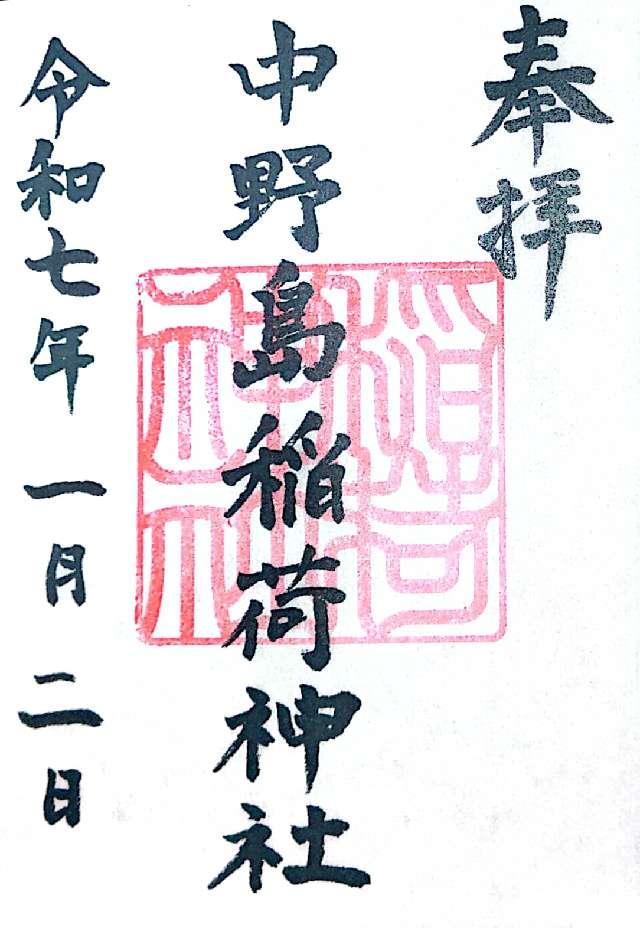 奉拝
中野島稲荷神社
稲荷神社
令和七年 一月二日